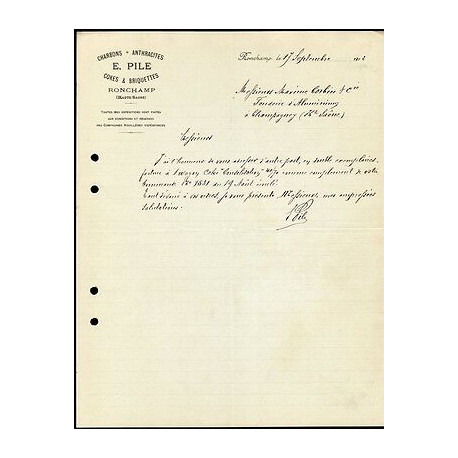 CHARBONS - ANTHRACITES
E. PILE
COKES & BRIQUETTES
RONCHAMP
(HAUTE-SAONE)
TOUTES MES EXPEDITIONS SONT FAITES
AUX CONDITIONS ET RESERVES
DES COMPAGNIES HOUILLERES EXPEDITRICES
Ronchamp le 17 Septembre
Messieurs Maxime Corbin & Cie
Fonderie d'Aluminium
à Champagney (Hte Saône)
Messieurs
J'ai l'honneur de vous adresser d'autre part, en double exemplaires,
facture à 1 wagon Coke comme complément de votre
commande No 1631 du 19 Août
Tout dévoué à vos ordres, je vous présente, Messieurs, mes empressées
salutations.
E Pile